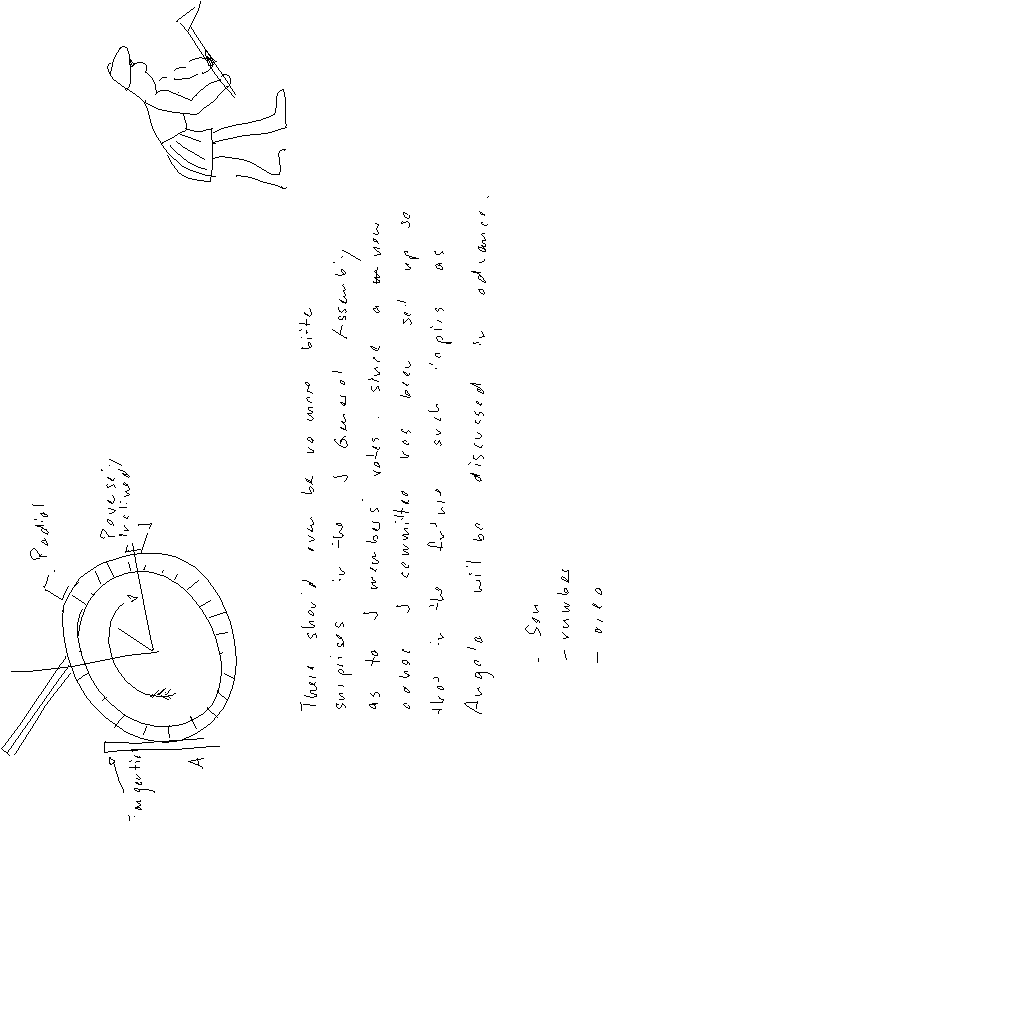 Radial
Reversely
inclined
Tangential
A
There should ever be no more bitter
surprises in the General Assembly
as to members' votes. since a new
adhoc committee has been set up so
that in the future such topics as
Angola will be discussed in advance.
- Son
- numbers
- area